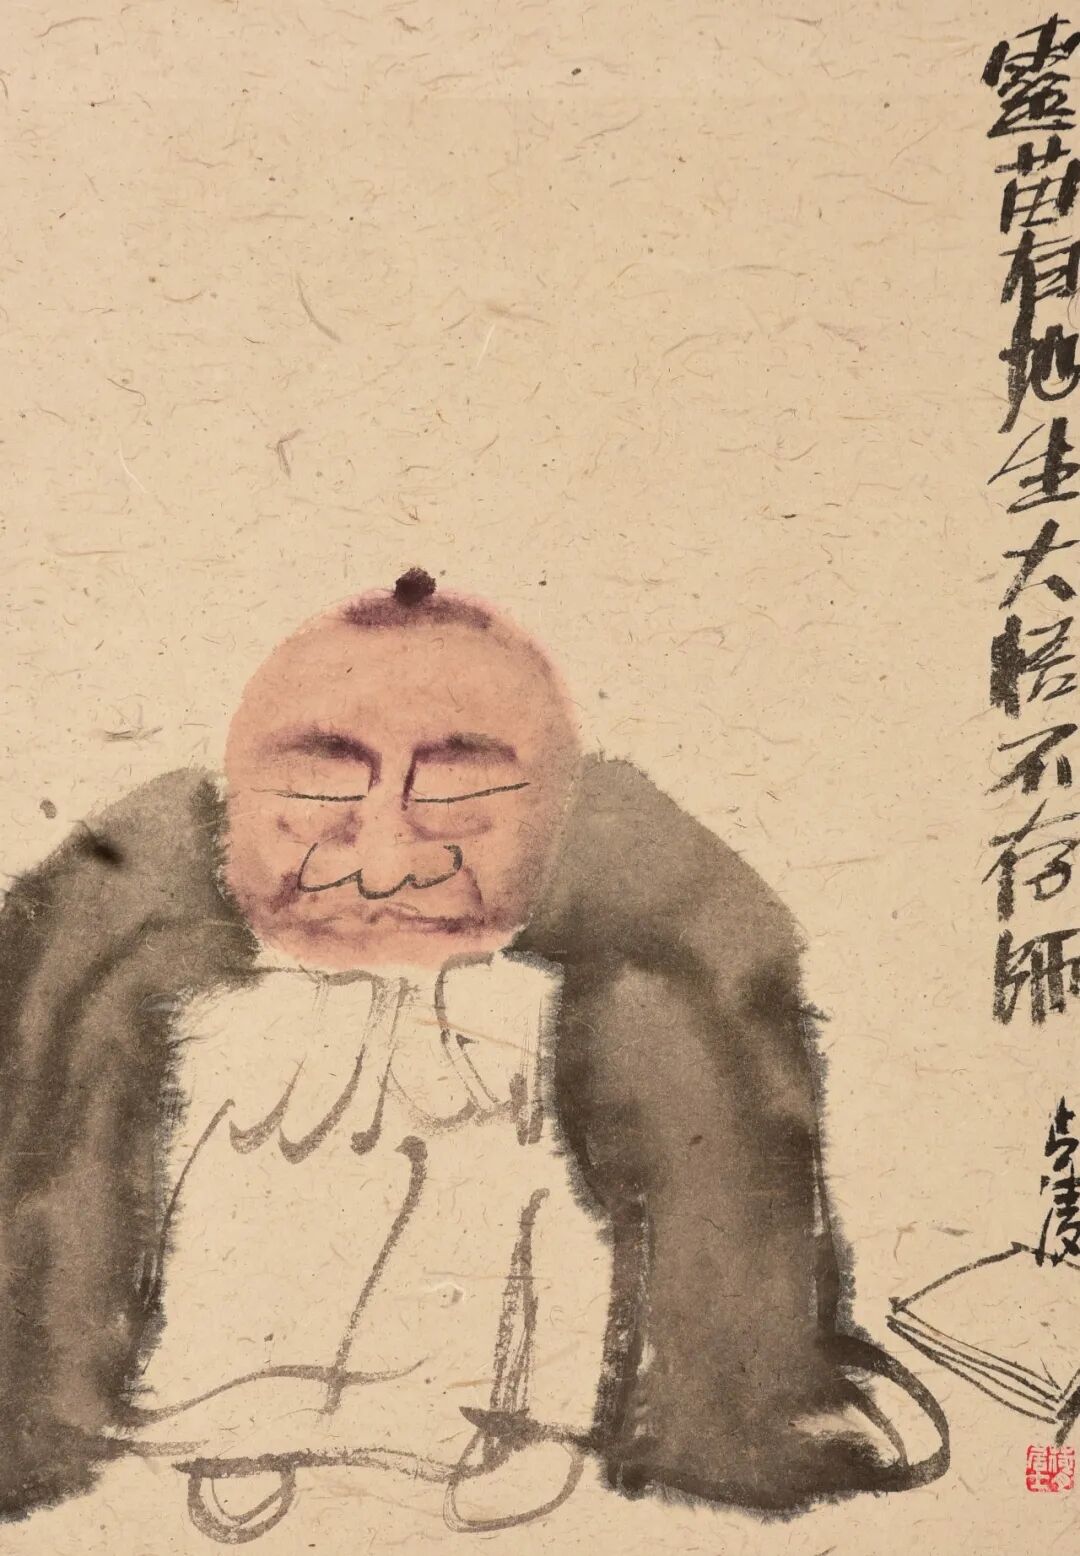 靈苗有地生大悟不存師